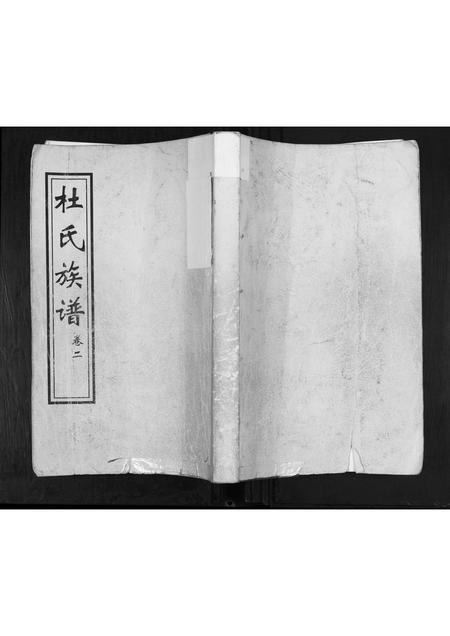 杜氏族谱
卷二